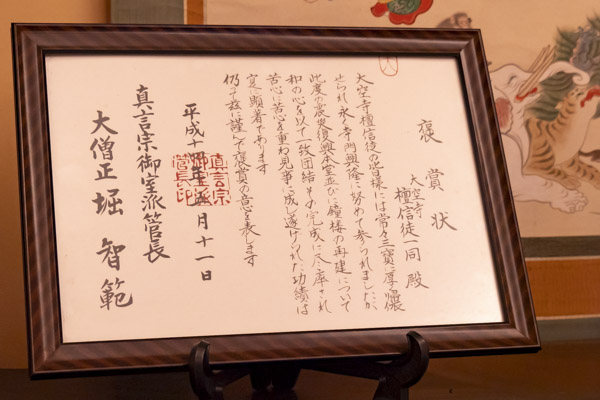 褒賞状
大空寺
檀信徒一同 殿
大空寺檀信徒の皆様には常々三寶に厚く帰依
せられ永く寺門興隆に努めて参られましたが
此度の震災復興本堂並びに鐘楼の再建について
和の心を以て一致団結その完成に尽瘁され
苦心に苦心を重ね見事に成し遂げられた功績は
寔に顕著であります
仍って茲に謹んで褒賞の意を表します
平成十四年 月十一日
真言宗御室派管長
大僧正 堀 智範
真言宗
御室派
管長印